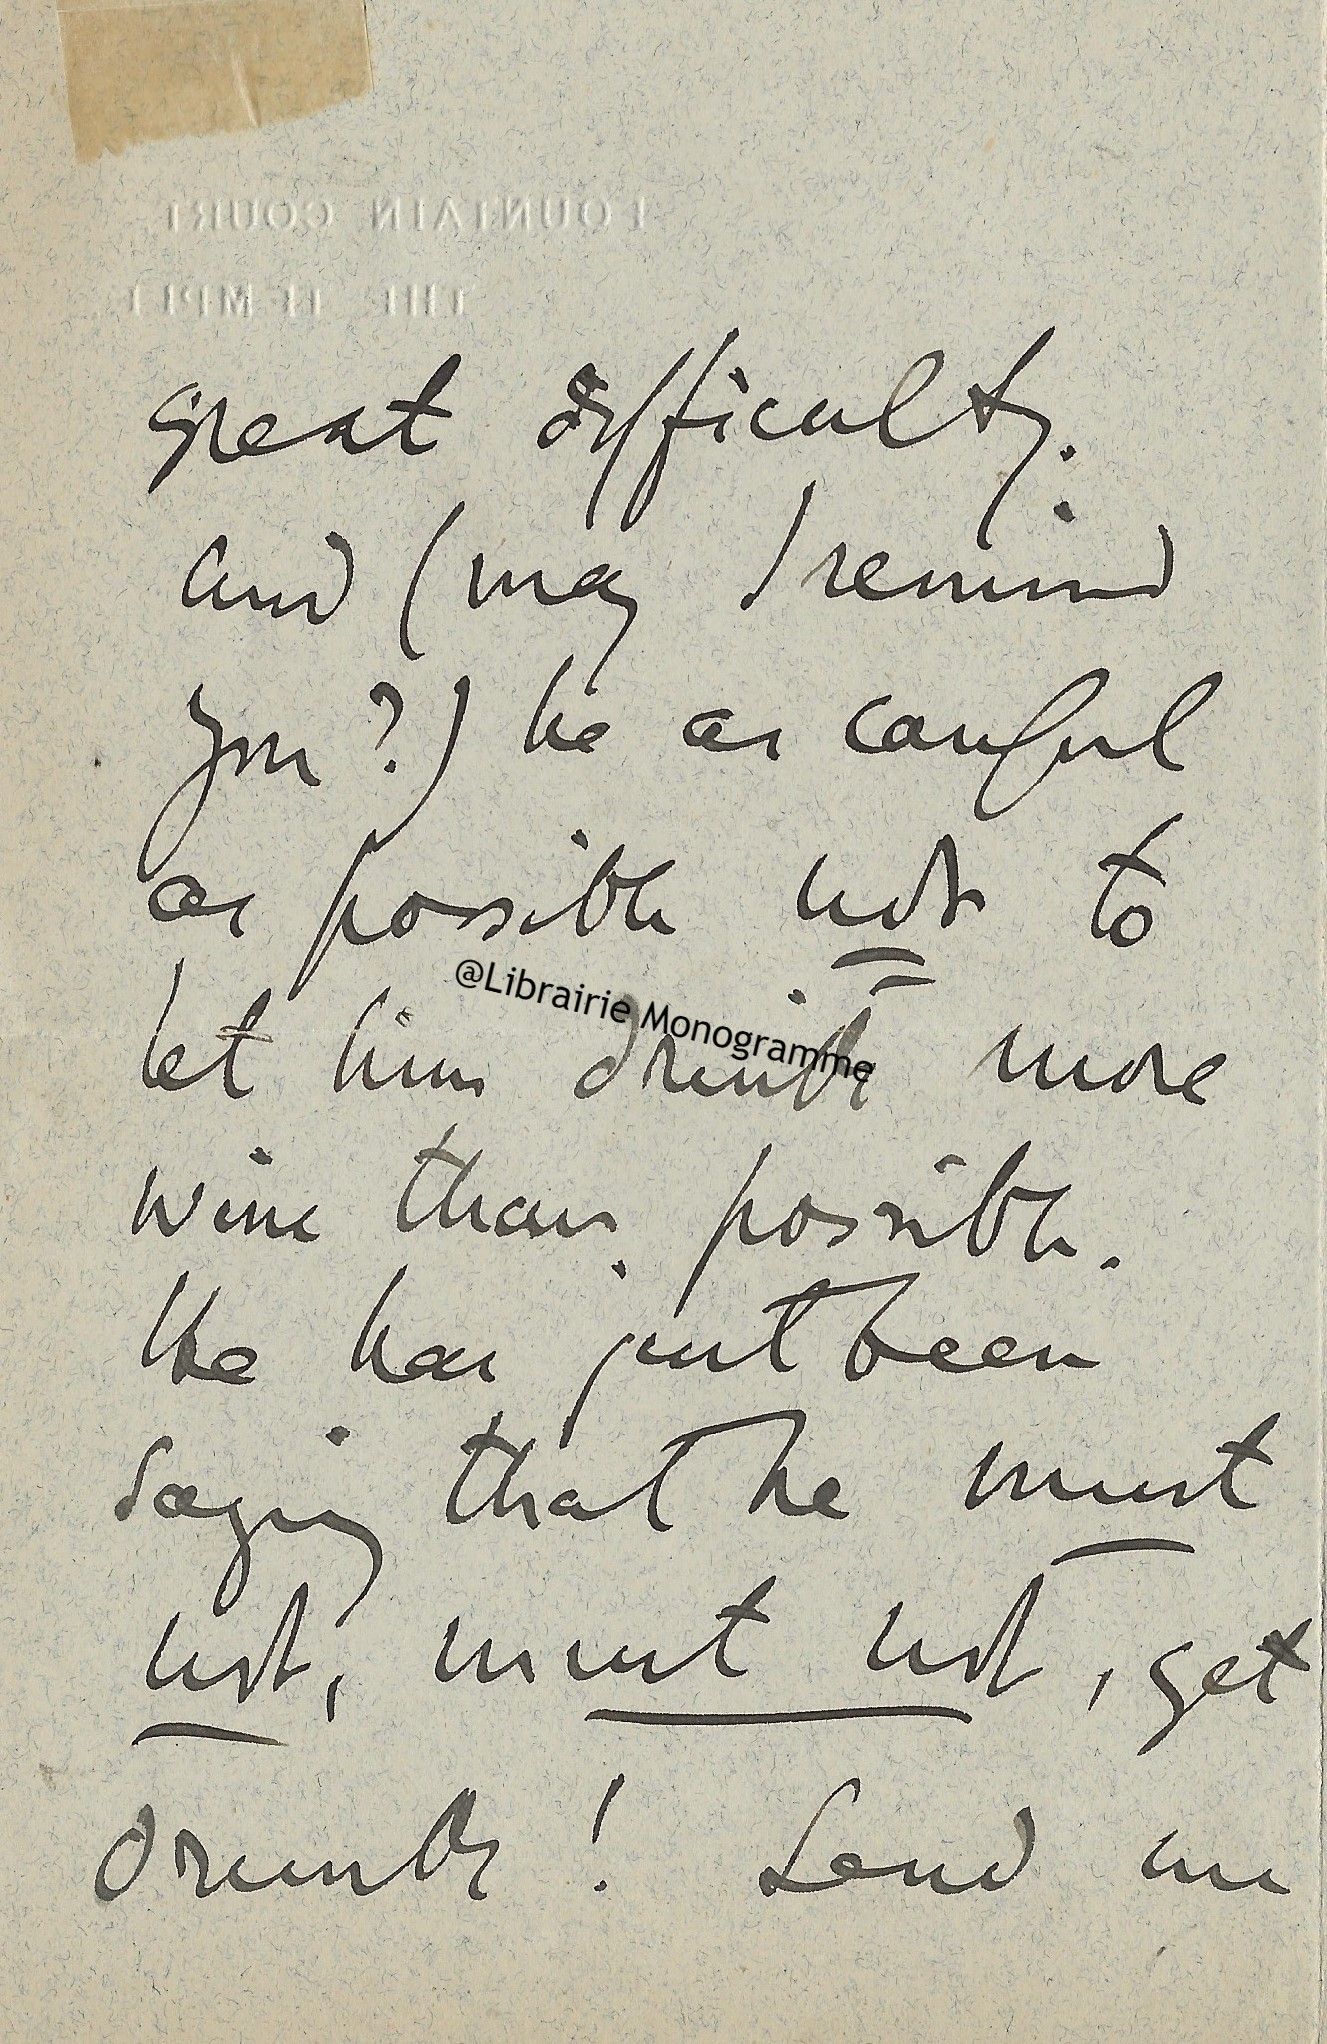 FOUNTAIN COURT
THE TEMPLE
great difficulty.
and (may I remind
you?) be as careful
as possible not to
@Librairie Monogramme
let him drink more
wine than possible.
He has just been
saying that he must
not, must not, get
drunk! Send me